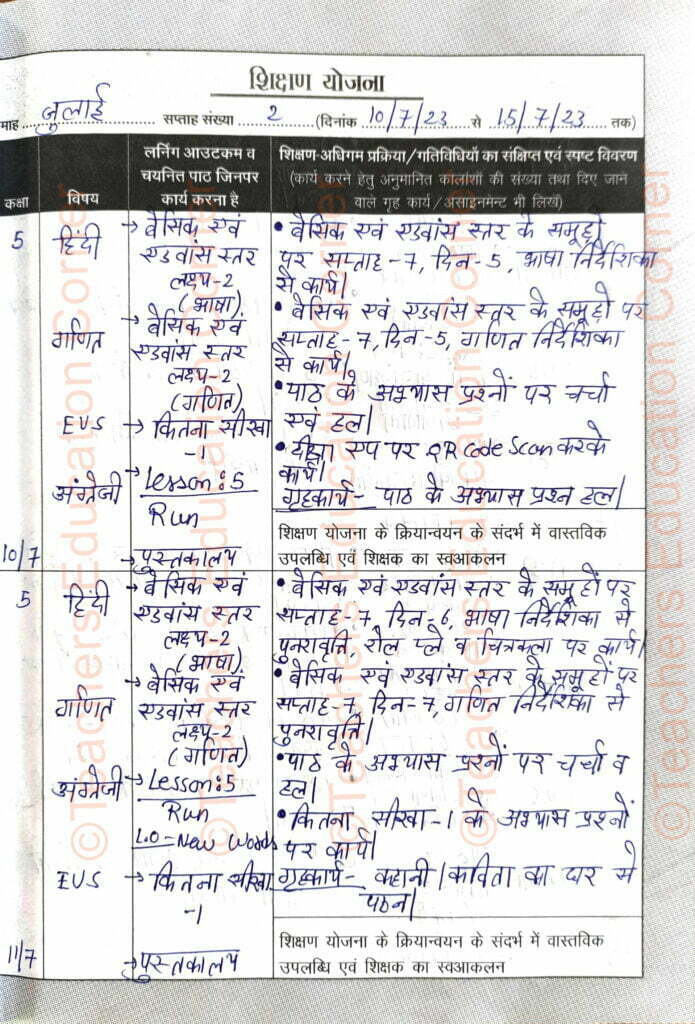 शिक्षण योजना
माह जुलाई सप्ताह संख्या 2 (दिनांक 10/7/23 से 15/7/23 तक)
कक्षा
विषय
लर्निंग आउटकम व
चयनित पाठ जिनपर
कार्य करना है
शिक्षण-अधिगम प्रक्रिया/गतिविधियों का संक्षिप्त एवं स्पष्ट विवरण
(कार्य करने हेतु अनुमानित कालांशों की संख्या तथा दिए जाने
वाले गृह कार्य/असाइनमेन्ट भी लिखें)
5
हिंदी
→ बेसिक एवं
एडवांस स्तर
लक्ष्य-2
(भाषा)
• बेसिक एवं एडवांस स्तर के समूहों
पर सप्ताह-7, दिन-5, भाषा निर्देशिका
से कार्य।
गणित
→ बेसिक एवं
एडवांस स्तर
लक्ष्य-2
(गणित)
• बेसिक एवं एडवांस स्तर के समूहों पर
सप्ताह-7, दिन-5, गणित निर्देशिका
से कार्य।
EVS
→ कितना सीखा
-1
• पाठ के अभ्यास प्रश्नों पर चर्चा
एवं हल।
अंग्रेजी
→ Lesson:5
Run
• दीक्षा एप पर QR code Scan करके
कार्य।
गृहकार्य- पाठ के अभ्यास प्रश्न हल।
10/7
→ पुस्तकालय
शिक्षण योजना के क्रियान्वयन के संदर्भ में वास्तविक
उपलब्धि एवं शिक्षक का स्वआकलन
5
हिंदी
→ बेसिक एवं
एडवांस स्तर
लक्ष्य-2
(भाषा)
• बेसिक एवं एडवांस स्तर के समूहों पर
सप्ताह-7, दिन-6, भाषा निर्देशिका से
पुनरावृत्ति, रोल प्ले व चित्रकला पर कार्य।
गणित
→ बेसिक एवं
एडवांस स्तर
लक्ष्य-2
(गणित)
• बेसिक एवं एडवांस स्तर के समूहों पर
सप्ताह-7, दिन-7, गणित निर्देशिका से
पुनरावृत्ति।
अंग्रेजी
→ Lesson:5
Run
L.O-New Words
• पाठ के अभ्यास प्रश्नों पर चर्चा व
हल।
• कितना सीखा-1 के अभ्यास प्रश्नों
पर कार्य।
EVS
→ कितना सीखा
-1
गृहकार्य- कहानी/कविता का घर से
पठन।
11/7
→ पुस्तकालय
शिक्षण योजना के क्रियान्वयन के संदर्भ में वास्तविक
उपलब्धि एवं शिक्षक का स्वआकलन
©Teachers Education Corner
©Teachers Education Corner
©Teachers Education Corner
©Teachers Education Corner
©Teachers Education Corner